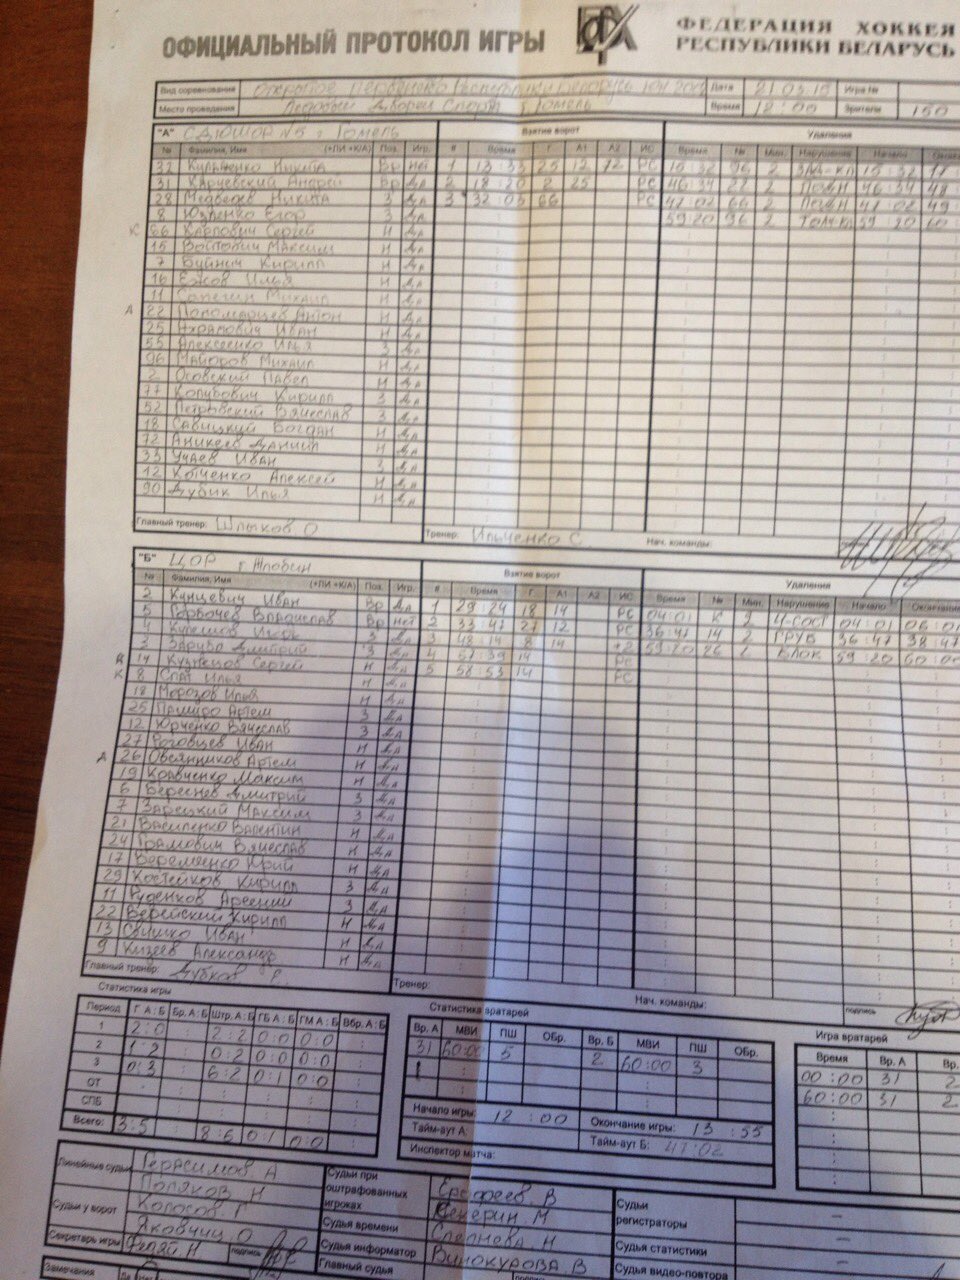 ОФИЦИАЛЬНЫЙ ПРОТОКОЛ ИГРЫ
ФЕДЕРАЦИЯ ХОККЕЯ
РЕСПУБЛИКИ БЕЛАРУСЬ
Вид соревнования Открытое Первенство Республики Беларусь Дата 21.03.15 Игра №
Место проведения Ледовый Дворец Спорта г. Гомель Время 12:00 Зрители 150
"А" СДЮШОР №5 г. Гомель Взятие ворот Удаления
№ Фамилия, Имя (+ПИ +К/А) Поз. Игр. # Время Г. А1 А2 ИС Время № Мин. Нарушение Начало
32 Кульченко Никита Вр нет 1 13:33 25 12 72 РС 15:32 96 2 15:32
31 Карчевский Андрей Вр Да 2 18:20 2 25 РС 46:34 22 2 46:34
28 Медведев Никита З Да 3 32:03 66 РС 47:02 66 2 47:02
8 Юзленко Егор З Да 59:20 96 2 59:20
К 66 Карпович Сергей Н Да
15 Войтович Максим Н Да
7 Буйнич Кирилл Н Да
16 Ежов Илья Н Да
11 Сапегин Михаил Н Да
А 22 Пономарцев Антон Н Да
25 Ахрамович Иван Н Да
55 Алексеенко Илья З Да
96 Майоров Михаил Н Да
2 Осовский Павел Н Да
77 Колубович Кирилл З Да
52 Петровский Вячеслав З Да
18 Савицкий Богдан Н Да
72 Аникеев Даниил Н Да
33 Учаев Иван З Да
12 Котченко Алексей Н Да
90 Дубик Илья Н Да
Главный тренер: Шлыков О Тренер: Ильченко С. Нач. команды:
"Б" ЦОР г. Жлобин Взятие ворот Удаления
№ Фамилия, Имя (+ПИ +К/А) Поз. Игр. # Время Г. А1 А2 ИС Время № Мин. Нарушение Начало Окончание
2 Кунцевич Иван Вр Да 1 29:24 18 14 РС 04:01 К 2 Ч-СОСТ 04:01 06:01
5 Горбачев Владислав Вр нет 2 33:47 27 12 РС 36:47 14 2 ГРУБ 36:47 38:47
4 Кулешов Игорь З Да 3 48:14 8 14 +2 59:20 26 2 БЛОК 59:20 60:00
3 Зарива Дмитрий З Да 4 57:39 14 РС
14 Кузнецов Сергей Н Да 5 58:53 14 РС
К 8 Спат Илья Н Да
18 Морозов Илья Н Да
25 Памиро Артем З Да
12 Юрченко Вячеслав З Да
27 Роговцев Иван Н Да
А 26 Овсянников Артем Н Да
19 Кравченко Максим Н Да
6 Береснев Дмитрий З Да
7 Зарецкий Максим З Да
21 Василенко Валентин Н Да
24 Грамович Вячеслав Н Да
17 Веремеенко Юрий Н Да
29 Костейков Кирилл З Да
11 Руденков Арсений З Да
22 Верейский Кирилл Н Да
13 Свишко Иван Н Да
9 Кизеев Александр Н Да
Главный тренер: Дубков С. Тренер: Нач. команды: подпись
Статистика игры
Период Г А:Б Бр. А:Б Штр. А:Б ГБ А:Б ГМ А:Б Вбр. А:Б
1 2:0 2:2 0:0 0:0
2 1:2 0:2 0:0 0:0
3 0:3 6:2 0:1 0:0
ОТ
СПБ
Всего: 3:5 8:6 0:1 0:0
Статистика вратарей
Вр. А МВИ ПШ Обр. Вр. Б МВИ ПШ Обр.
31 60:00 5 2 60:00 3
Начало игры: 12:00 Окончание игры: 13:55
Тайм-аут А: Тайм-аут Б: 47:02
Инспектор матча:
Игра вратарей
Время Вр. А Вр.
00:00 31 2
60:00 31 2
Линейные судьи Герасимов А
Поляков Н
Судьи у ворот Колосов Г
Якобчиц О
Секретарь игры Феляй Н подпись
Судьи при оштрафованных игроках Ерофеев В
Векерин М
Судья времени
Судья информатор Винокурова В
Главный судья
Судьи регистраторы –
Судья статистики –
Судья видео-повтора
Замечания